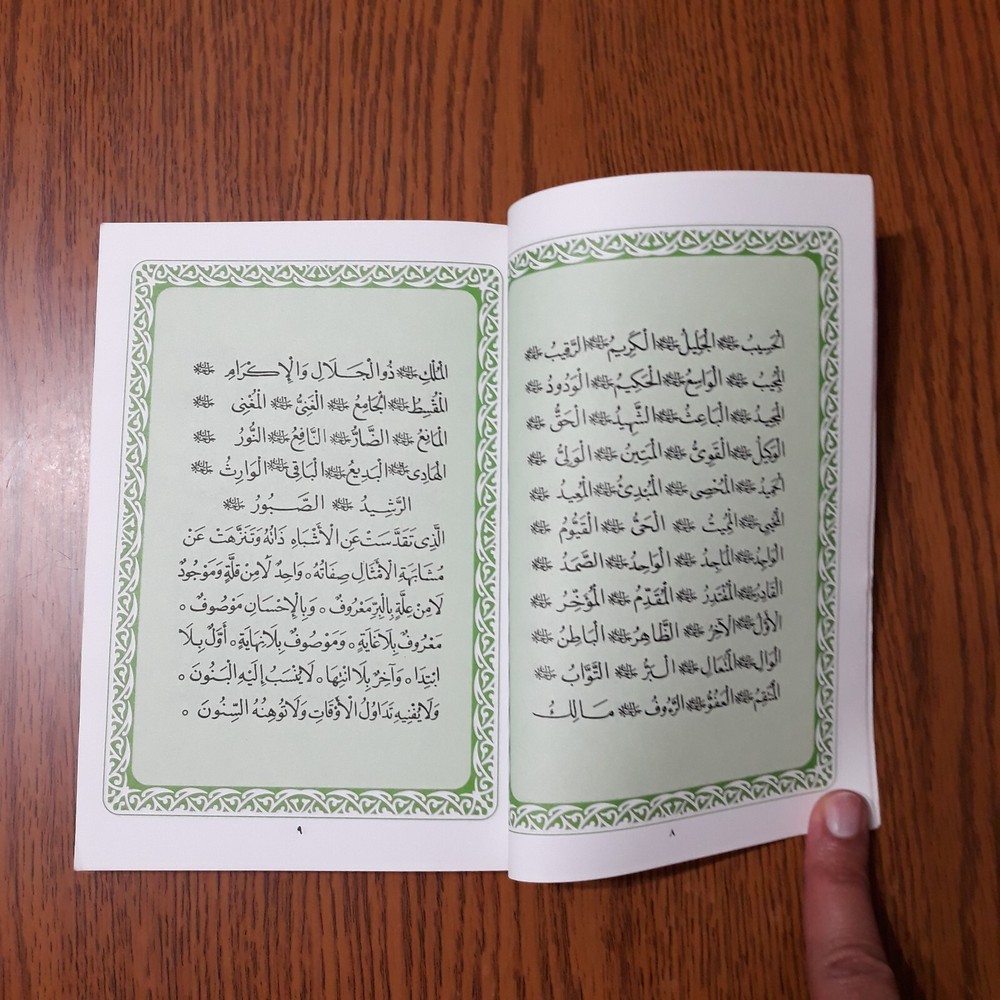 الْحَسِيبُ ﷻ الْجَلِيلُ ﷻ الْكَرِيمُ ﷻ الرَّقِيبُ ﷻ
الْمُجِيبُ ﷻ الْوَاسِعُ ﷻ الْحَكِيمُ ﷻ الْوَدُودُ ﷻ
الْمَجِيدُ ﷻ الْبَاعِثُ ﷻ الشَّهِيدُ ﷻ الْحَقُّ ﷻ
الْوَكِيلُ ﷻ الْقَوِىُّ ﷻ الْمَتِينُ ﷻ الْوَلِىُّ ﷻ
الْحَمِيدُ ﷻ الْمُحْصِى ﷻ الْمُبْدِئُ ﷻ الْمُعِيدُ ﷻ
الْمُحْيِى ﷻ الْمُمِيتُ ﷻ الْحَىُّ ﷻ الْقَيُّومُ ﷻ
الْوَاجِدُ ﷻ الْمَاجِدُ ﷻ الْوَاحِدُ ﷻ الصَّمَدُ ﷻ
الْقَادِرُ ﷻ الْمُقْتَدِرُ ﷻ الْمُقَدِّمُ ﷻ الْمُؤَخِّرُ ﷻ
الْأَوَّلُ ﷻ الْآخِرُ ﷻ الظَّاهِرُ ﷻ الْبَاطِنُ ﷻ
الْوَالِى ﷻ الْمُتَعَالِ ﷻ الْبَرُّ ﷻ التَّوَّابُ ﷻ
الْمُنْتَقِمُ ﷻ الْعَفُوُّ ﷻ الرَّءُوفُ ﷻ مَالِكُ
٨
الْمُلْكِ ﷻ ذُو الْجَلَالِ وَالْإِكْرَامِ ﷻ
الْمُقْسِطُ ﷻ الْجَامِعُ ﷻ الْغَنِىُّ ﷻ الْمُغْنِى ﷻ
الْمَانِعُ ﷻ الضَّارُّ ﷻ النَّافِعُ ﷻ النُّورُ ﷻ
الْهَادِى ﷻ الْبَدِيعُ ﷻ الْبَاقِى ﷻ الْوَارِثُ ﷻ
الرَّشِيدُ ﷻ الصَّبُورُ ﷻ
الَّذِى تَقَدَّسَتْ عَنِ الْأَشْبَاهِ ذَاتُهُ وَتَنَزَّهَتْ عَنْ
مُشَابَهَةِ الْأَمْثَالِ صِفَاتُهُ ۰ وَاحِدٌ لَا مِنْ قِلَّةٍ وَمَوْجُودٌ
لَا مِنْ عِلَّةٍ بِالْبِرِّ مَعْرُوفٌ ۰ وَبِالْإِحْسَانِ مَوْصُوفٌ ۰
مَعْرُوفٌ بِلَا غَايَةٍ ۰ وَمَوْصُوفٌ بِلَا نِهَايَةٍ ۰ أَوَّلٌ بِلَا
ابْتِدَا ۰ وَآخِرٌ بِلَا انْتِهَا ۰ لَا يُنْسَبُ إِلَيْهِ الْبَنُونَ ۰
وَلَا يُفْنِيهِ تَدَاوُلُ الْأَوْقَاتِ وَلَا تُوهِنُهُ السِّنُونَ ۰
٩